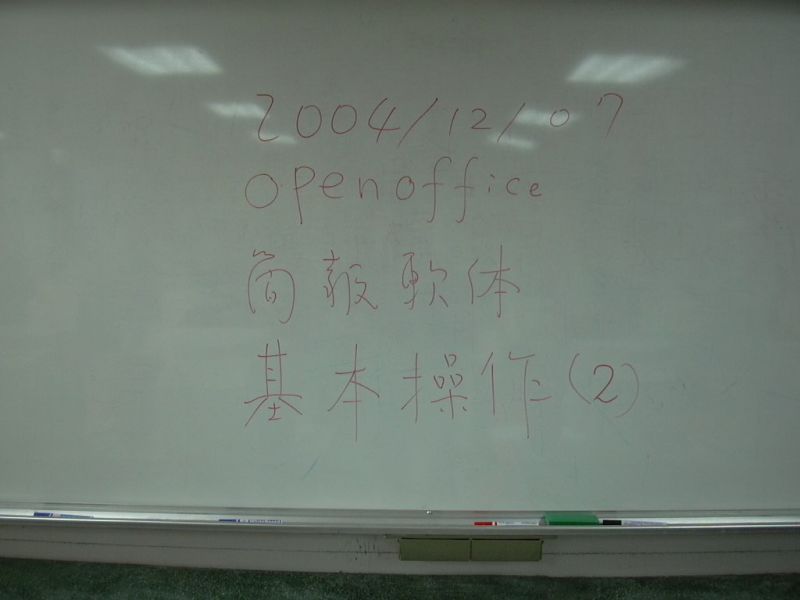 2004/12/07
openoffice
簡報軟体
基本操作(2)